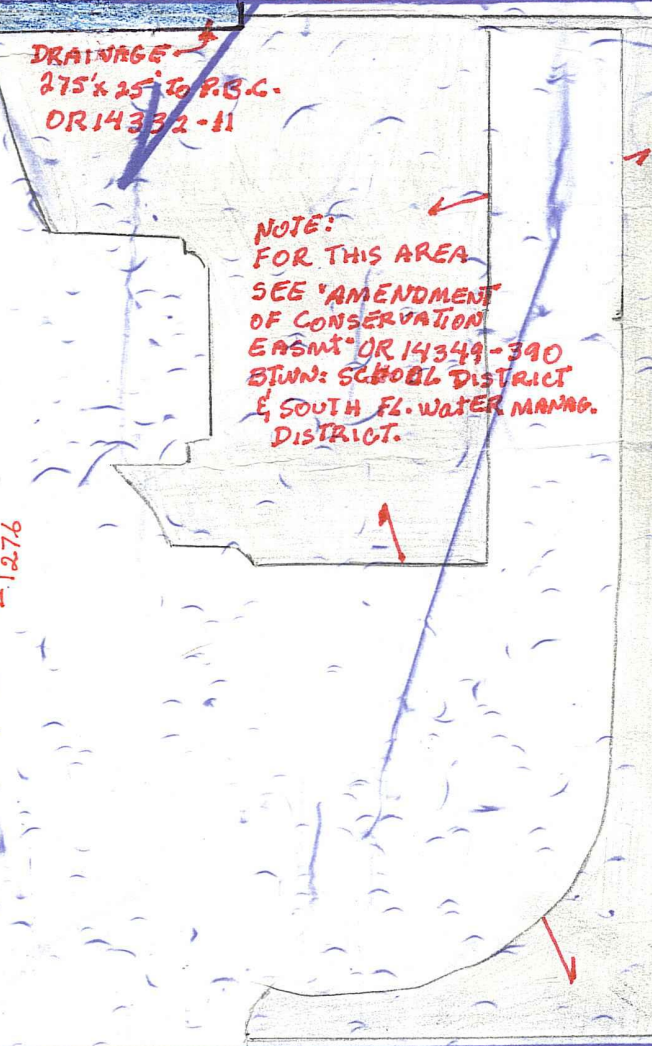 DRAINAGE
275'x 25' TO P.B.C.
OR 14332-11
NOTE:
FOR THIS AREA
SEE "AMENDMENT
OF CONSERVATION
EASMt" OR 14349-390
BTWN: SCHOOL DISTRICT
& SOUTH FL. WATER MANAG.
DISTRICT.
-1276